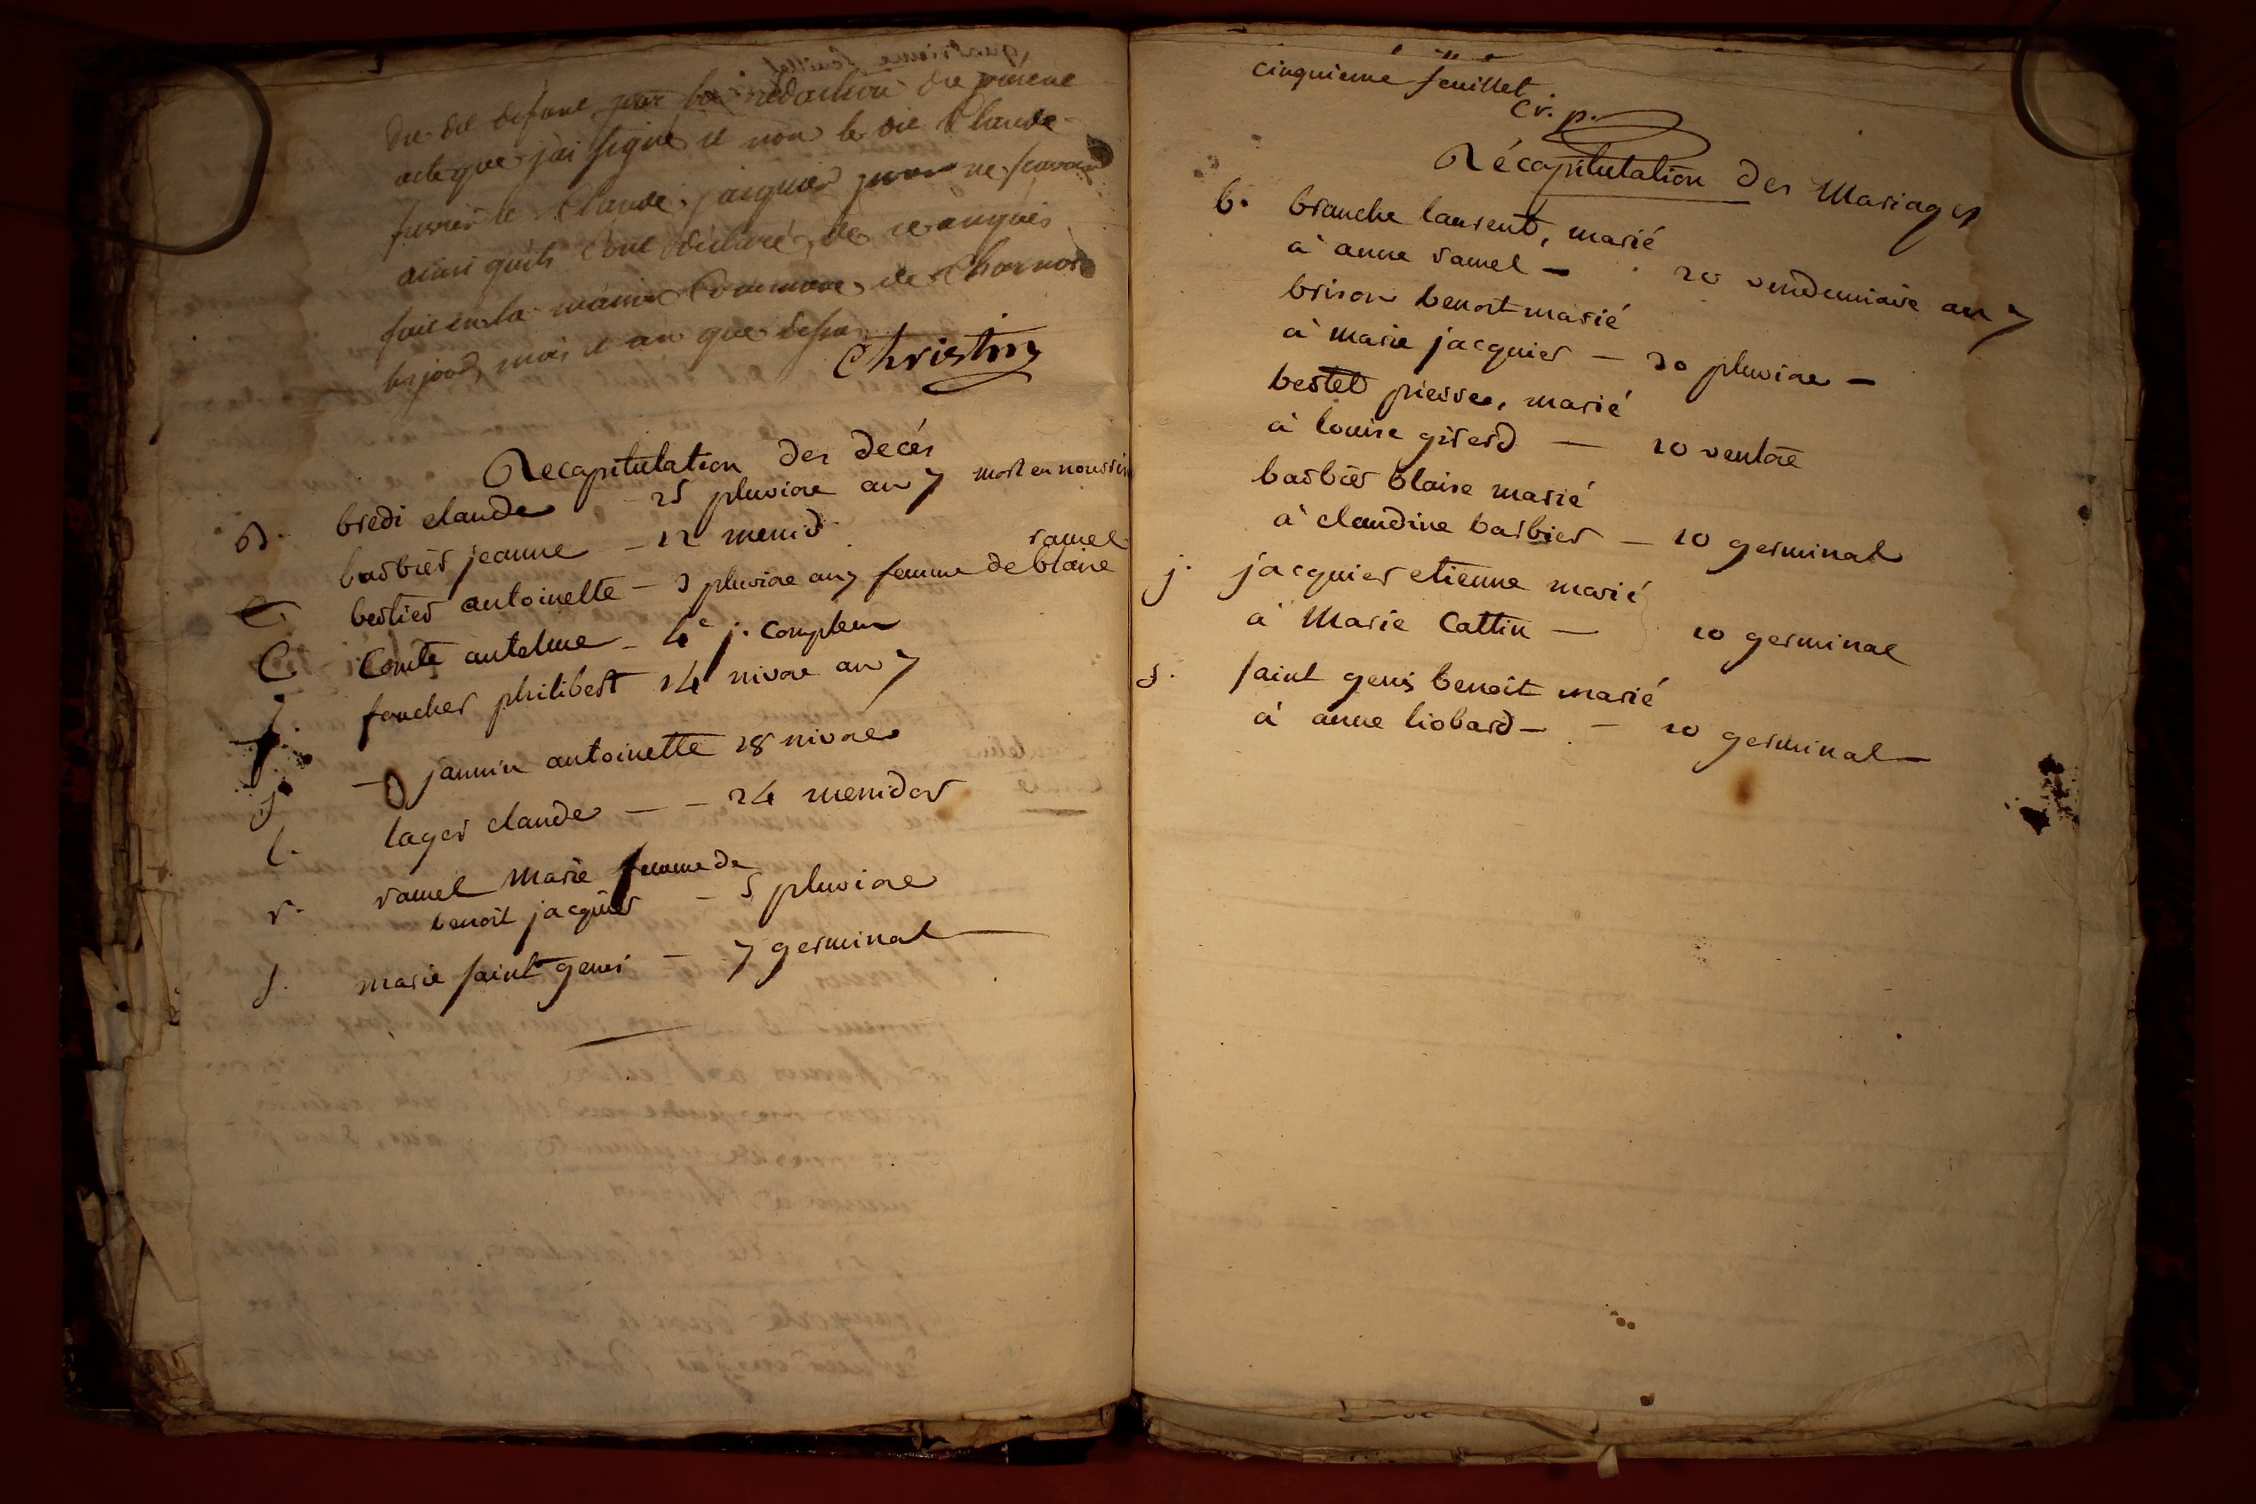 du dit defunt pour la rédaction du present
acte que j'ai signé et non le dit Claude
ni le Claude jacquier pour ne scavoir
ainsi quils l'ont déclaré de ce enquis
fait en la maison Commune de Charnoz
les jour, mois et an que dessus
Christin
Recapitulation des decés
b. bredi claude 25 pluviose an 7 mort en nourrice
barbier jeanne - 12 messid
bertier antoinette - 3 pluviose an 7 femme de blaise ramel
C Comte antelme - 4e j. Complem
f foucher philibert 14 nivose an 7
j. jannin antoinette 28 nivose
l. lager claude - - 24 messidor
r. ramel Marie femme de
benoit jacquier - 5 pluviose
s. marie saint genis - 7 germinal
cinquieme feuillet
cr. p.
Récapitulation des Mariages
b. branche laurent, marié
a anne ramel - 20 vendemiaire an 7
brison benoit marié
a marie jacquier - 30 pluviose -
bertet pierre, marié
à louise girerd - 10 ventose
barbier blaise marié
a claudine barbier - 10 germinal
j. jacquier etienne marié
a Marie Cattin - 10 germinal
s. saint genis benoit marié
a anne liobard - - 10 germinal -